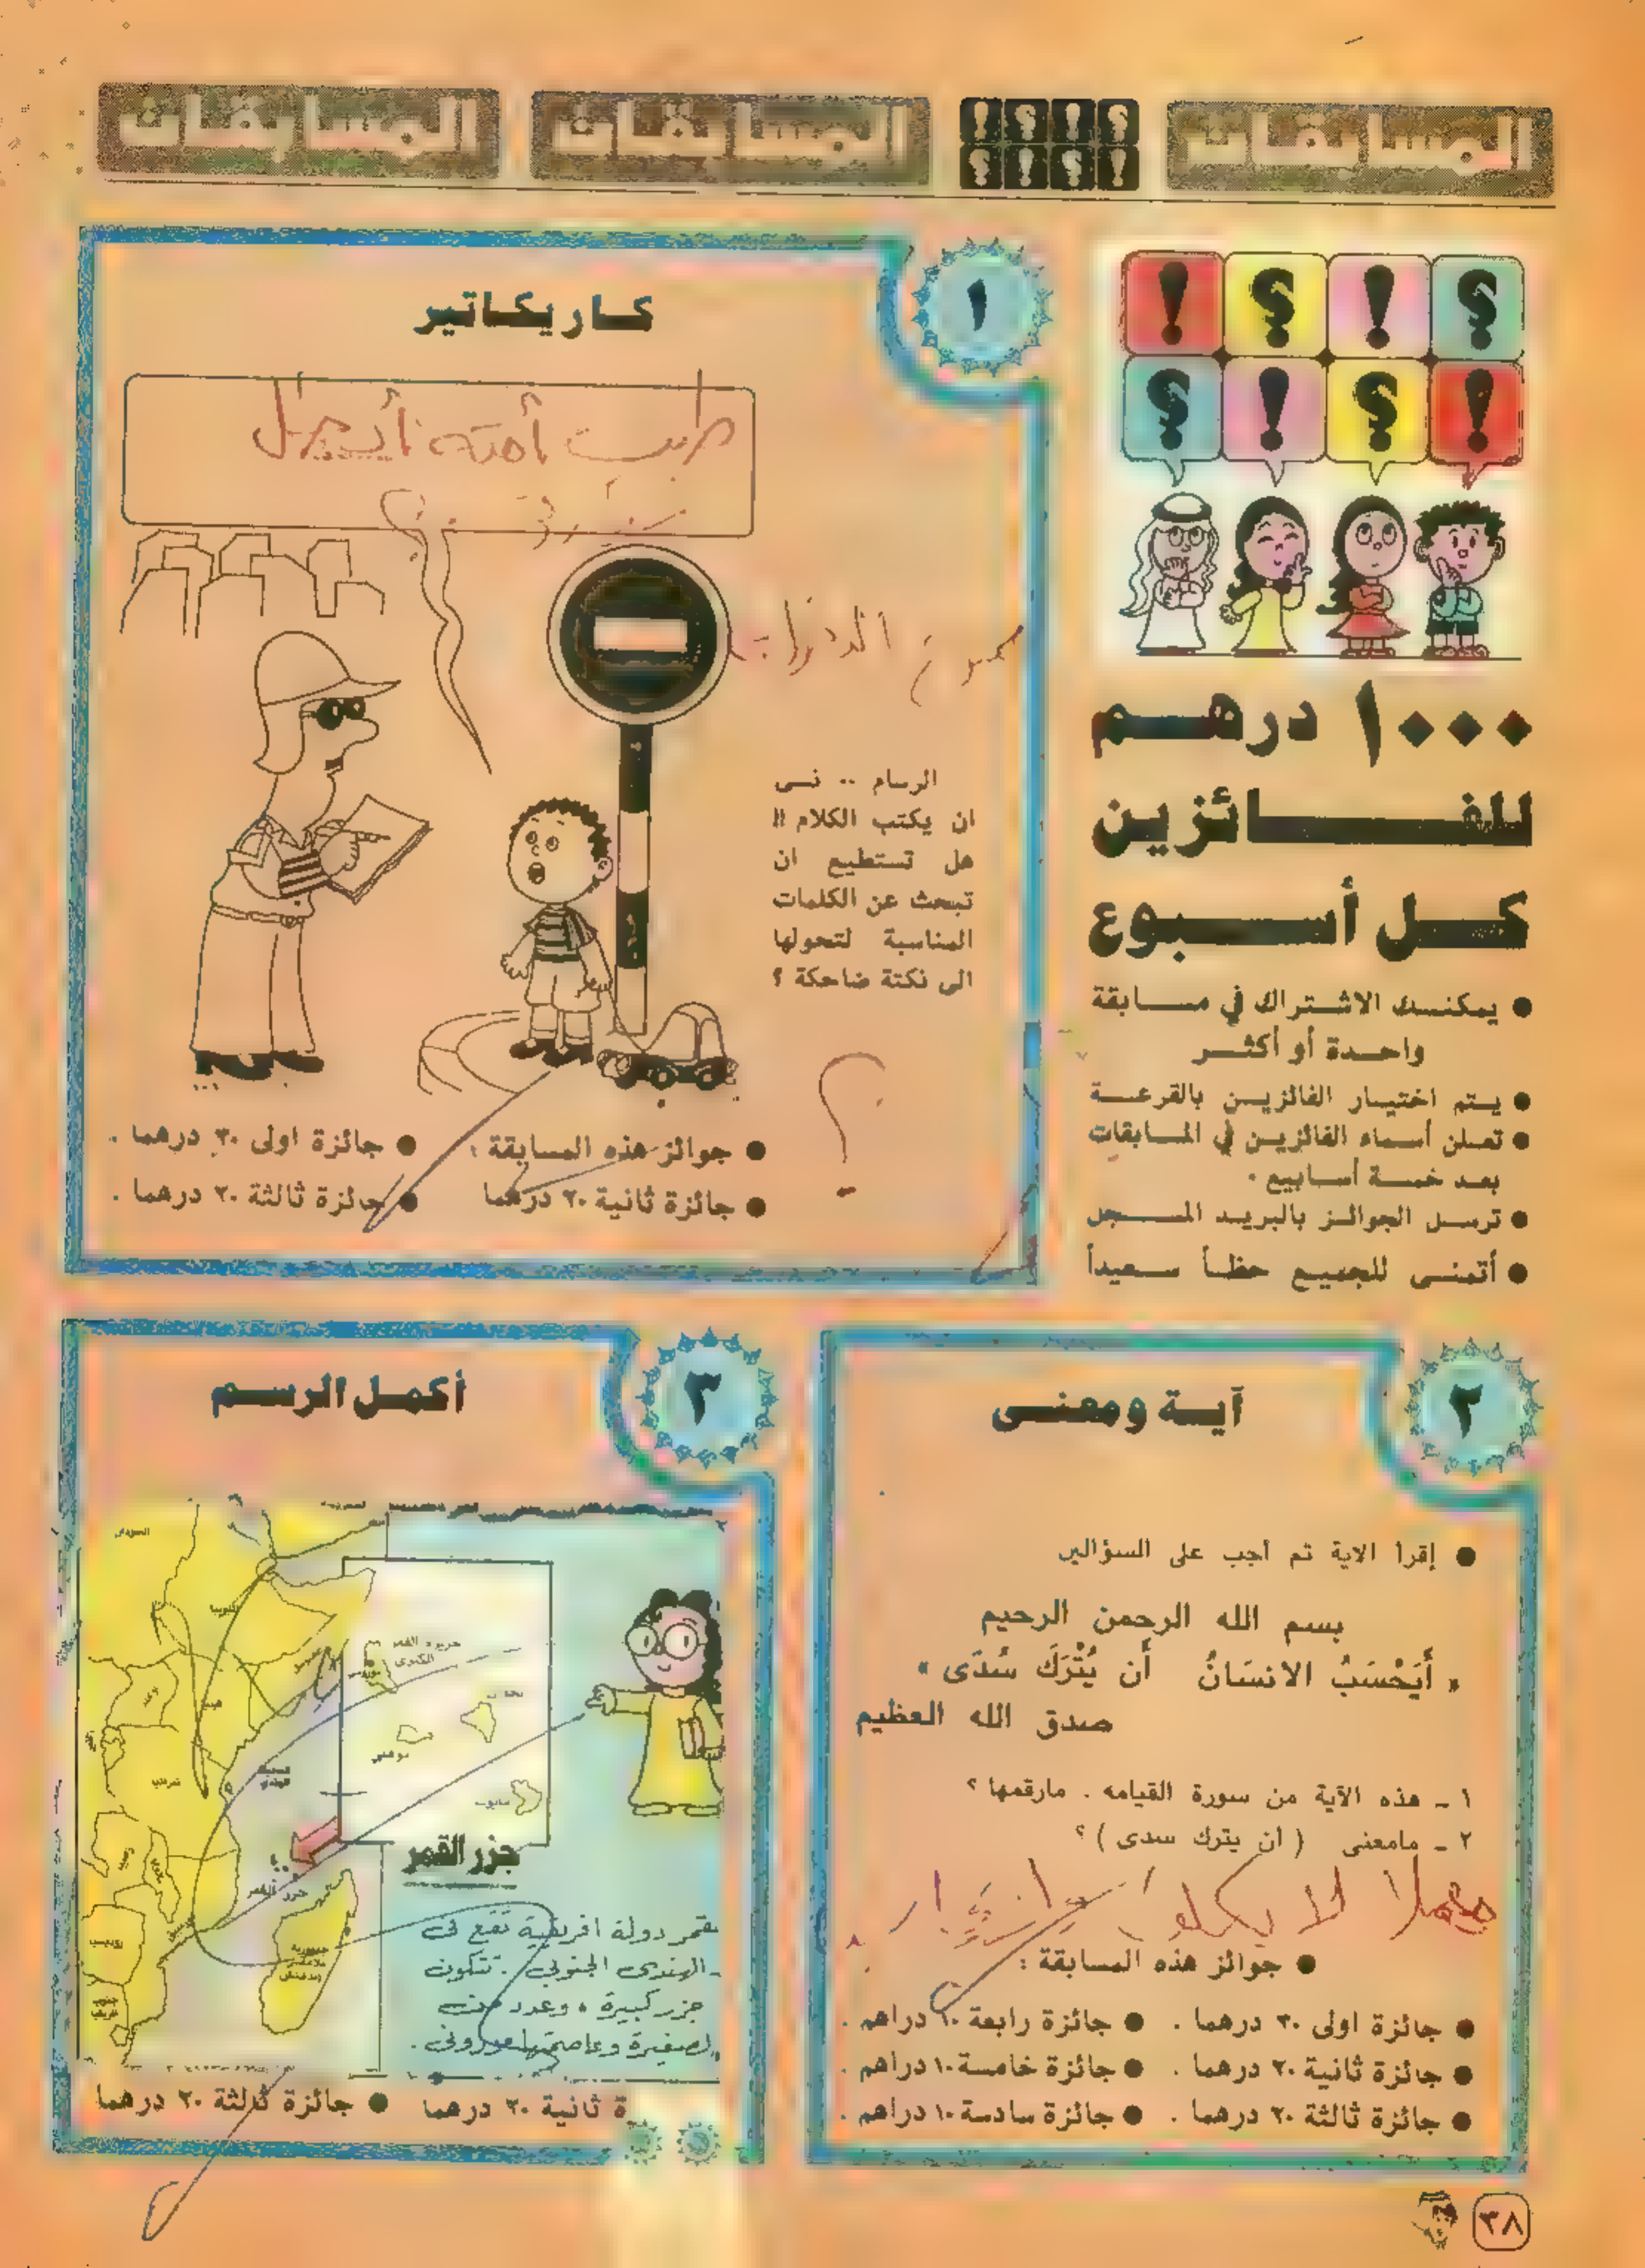 المسابقات
المسابقات
المسابقات
؟ ! ؟ !
! ؟ ! ؟
١٠٠٠ درهم
للفائزين
كل أسبوع
● يمكنك الاشتراك في مسابقة
واحدة أو أكثر
● يتم اختيار الفائزين بالقرعة
● تعلن أسماء الفائزين في المسابقات
بعد خمسة أسابيع .
● ترسل الجوائز بالبريد المسجل
● أتمنى للجميع حظاً سعيداً
١
كاريكاتير
طيب
الرسام .. نسى
ان يكتب الكلام !!
هل تستطيع ان
تبحث عن الكلمات
المناسبة لتحولها
الى نكتة ضاحكة ؟
؟
● جوائز هذه المسابقة :
● جائزة اولى ٣٠ درهما .
● جائزة ثانية ٢٠ درهما
● جائزة ثالثة ٢٠ درهما .
٢
آية ومعنى
● إقرأ الاية ثم اجب على السؤالين
بسم الله الرحمن الرحيم
« أَيَحْسَبُ الانسَانُ أَن يُتْرَكَ سُدَى »
صدق الله العظيم
١ ـ هذه الآية من سورة القيامه . مارقمها ؟
٢ ـ مامعنى ( أن يترك سدى ) ؟
مهملا لا يكلف
● جوائز هذه المسابقة :
● جائزة اولى ٣٠ درهما .
● جائزة رابعة ١٠ دراهم .
● جائزة ثانية ٢٠ درهما .
● جائزة خامسة ١٠ دراهم .
● جائزة ثالثة ٢٠ درهما .
● جائزة سادسة ١٠ دراهم .
٣
أكمل الرسم
السودان
جزيرة القمر
الكبرى
جزر القمر
جزر القمر
قمر دولة افريقية تقع فى
الهندى الجنوبى . تتكون
جزر كبيرة ، وعدد من
لصغيرة وعاصمتها مورونى .
ة ثانية ٢٠ درهما
● جائزة ثالثة ٢٠ درهما
٣٨